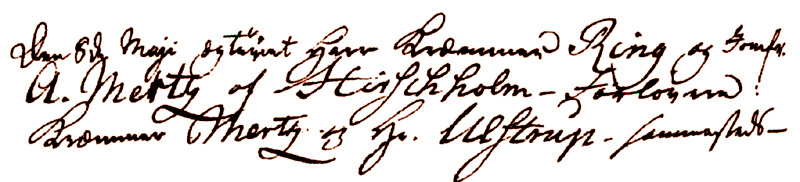 Den 8de Maji egteviet Herr Kræmmer Ring og Jomfr.
A. Mertz af Hirschholm – Forlovere:
Kræmmer Mertz og Hr. Ulstrup – sammesteds –